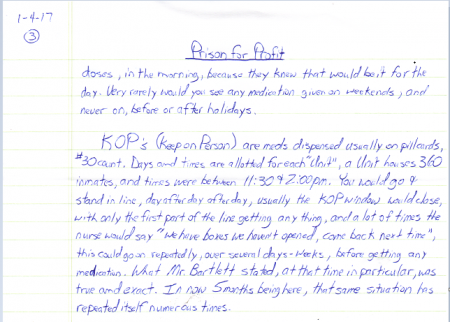 1-4-17
3
Prison for Profit
doses, in the morning, because they knew that would be it for the
day. Very rarely would you see any medication given on weekends, and
never on, before or after holidays.
KOP's (Keep on Person) are meds dispensed usually on pillcards,
#30 count. Days and times are allotted for each "Unit", a Unit houses 360
inmates, and times were between 11:30 & 2:00pm. You would go &
stand in line, day after day after day, usually the KOP window would close,
with only the first part of the line getting any thing, and a lot of times the
nurse would say "we have boxes we haven't opened, come back next time",
this could go on repeatedly, over several days-weeks, before getting any
medication. What Mr. Bartlett stated, at that time in particular, was
true and exact. In now 5 months being here, that same situation has
repeated itself numerous times.